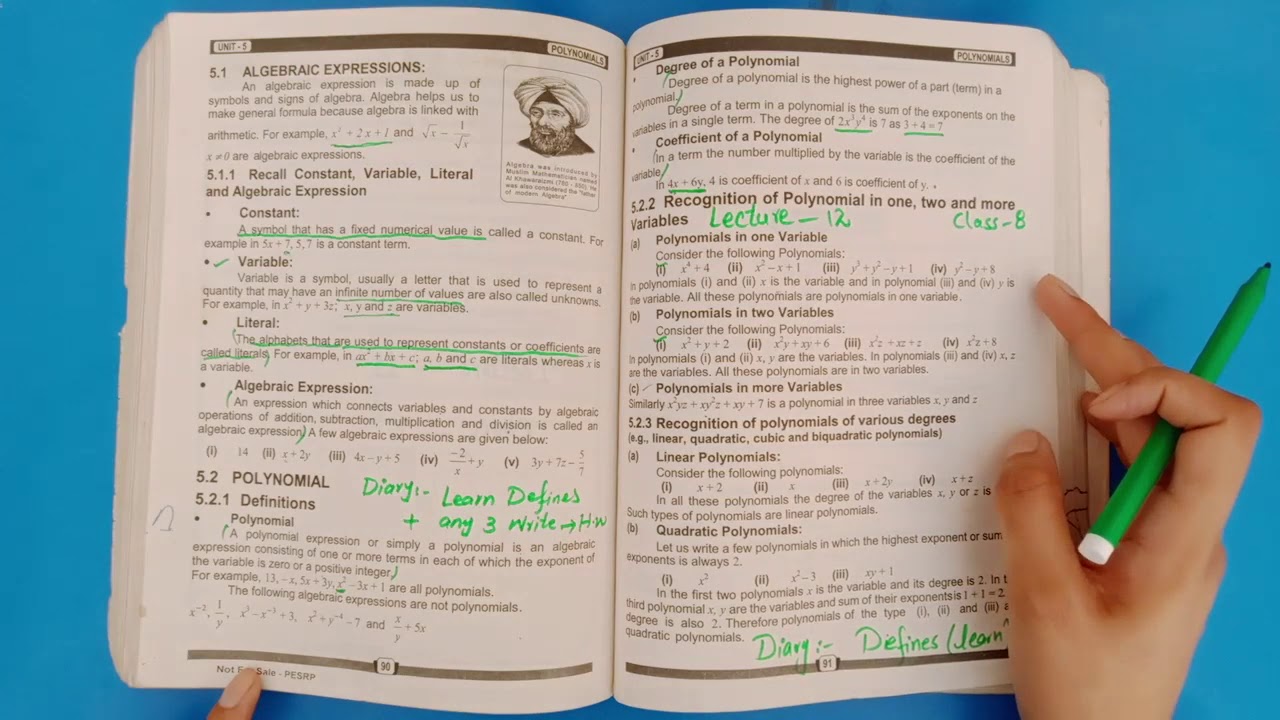 UNIT - 5
POLYNOMIALS
5.1 ALGEBRAIC EXPRESSIONS:
An algebraic expression is made up of
symbols and signs of algebra. Algebra helps us to
make general formula because algebra is linked with
arithmetic. For example, x² + 2x + 1 and √x − 1/√x
x ≠ 0 are algebraic expressions.
Algebra was introduced by
Muslim Mathematician named
Al Khawaraizmi (780 - 850). He
was also considered the "father
of modern Algebra"
5.1.1 Recall Constant, Variable, Literal
and Algebraic Expression
• Constant:
A symbol that has a fixed numerical value is called a constant. For
example in 5x + 7, 5, 7 is a constant term.
• Variable:
Variable is a symbol, usually a letter that is used to represent a
quantity that may have an infinite number of values are also called unknowns.
For example, in x² + y + 3z; x, y and z are variables.
• Literal:
The alphabets that are used to represent constants or coefficients are
called literals. For example, in ax² + bx + c; a, b and c are literals whereas x is
a variable.
• Algebraic Expression:
An expression which connects variables and constants by algebraic
operations of addition, subtraction, multiplication and division is called an
algebraic expression. A few algebraic expressions are given below:
(i) 14 (ii) x + 2y (iii) 4x − y + 5 (iv) −2/x + y (v) 3y + 7z − 5/7
5.2 POLYNOMIAL
Diary:- Learn Defines
5.2.1 Definitions
+ any 3 write → H.W
• Polynomial
A polynomial expression or simply a polynomial is an algebraic
expression consisting of one or more terms in each of which the exponent of
the variable is zero or a positive integer.
For example, 13, −x, 5x + 3y, x² − 3x + 1 are all polynomials.
The following algebraic expressions are not polynomials.
x⁻², 1/y, x³ − x⁻³ + 3, x² + y⁻⁴ − 7 and x/y + 5x
90
Not For Sale - PESRP
UNIT - 5
POLYNOMIALS
• Degree of a Polynomial
Degree of a polynomial is the highest power of a part (term) in a
polynomial.
Degree of a term in a polynomial is the sum of the exponents on the
variables in a single term. The degree of 2x³y⁴ is 7 as 3 + 4 = 7
• Coefficient of a Polynomial
In a term the number multiplied by the variable is the coefficient of the
variable.
In 4x + 6y, 4 is coefficient of x and 6 is coefficient of y.
5.2.2 Recognition of Polynomial in one, two and more
Variables Lecture - 12 Class - 8
(a) Polynomials in one Variable
Consider the following Polynomials:
(i) x⁴ + 4 (ii) x² − x + 1 (iii) y³ + y² − y + 1 (iv) y² − y + 8
In polynomials (i) and (ii) x is the variable and in polynomial (iii) and (iv) y is
the variable. All these polynomials are polynomials in one variable.
(b) Polynomials in two Variables
Consider the following Polynomials:
(i) x² + y + 2 (ii) x²y + xy + 6 (iii) x²z + xz + z (iv) x²z + 8
In polynomials (i) and (ii) x, y are the variables. In polynomials (iii) and (iv) x, z
are the variables. All these polynomials are in two variables.
(c) Polynomials in more Variables
Similarly x²yz + xy²z + xy + 7 is a polynomial in three variables x, y and z
5.2.3 Recognition of polynomials of various degrees
(e.g., linear, quadratic, cubic and biquadratic polynomials)
(a) Linear Polynomials:
Consider the following polynomials:
(i) x + 2 (ii) x (iii) x + 2y (iv) x + z
In all these polynomials the degree of the variables x, y or z is
Such types of polynomials are linear polynomials.
(b) Quadratic Polynomials:
Let us write a few polynomials in which the highest exponent or sum
exponents is always 2.
(i) x² (ii) x² − 3 (iii) xy + 1
In the first two polynomials x is the variable and its degree is 2. In
third polynomial x, y are the variables and sum of their exponents is 1 + 1 = 2
degree is also 2. Therefore polynomials of the type (i), (ii) and (iii)
quadratic polynomials.
Diary:- Defines (learn
91